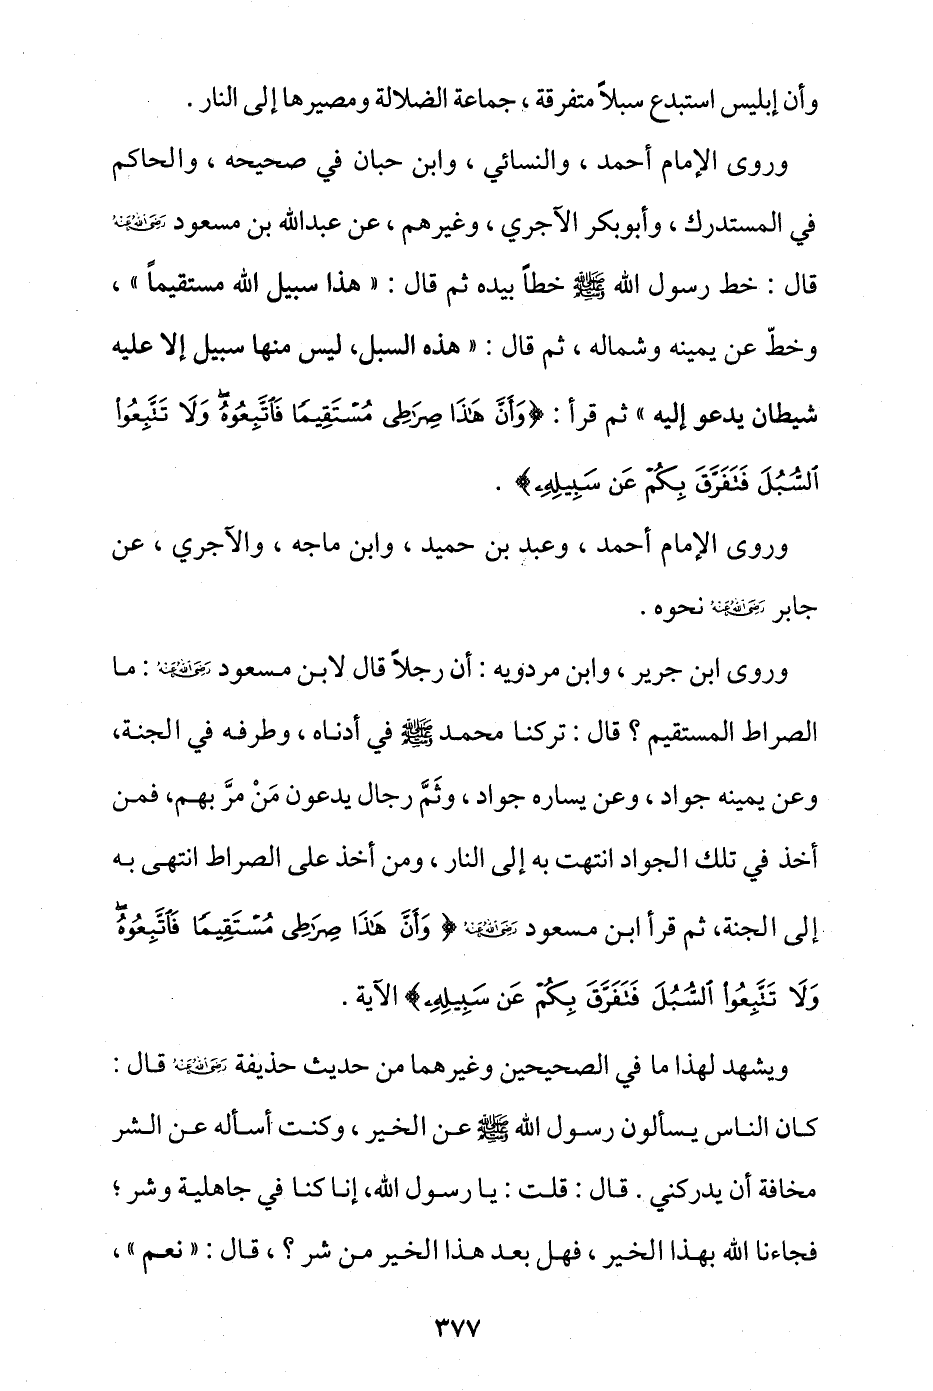 وأن إبليس استبدع سبلاً متفرقة ، جماعة الضلالة ومصيرها إلى النار .
وروى الإمام أحمد ، والنسائي ، وابن حبان في صحيحه ، والحاكم
في المستدرك ، وأبوبكر الآجري ، وغيرهم ، عن عبدالله بن مسعود رَضِيَ اللهُ عَنْهُ
قال : خط رسول الله ﷺ خطاً بيده ثم قال : « هذا سبيل الله مستقيماً » ،
وخطّ عن يمينه وشماله ، ثم قال : « هذه السبل، ليس منها سبيل إلا عليه
شيطان يدعو إليه » ثم قرأ : ﴿وَأَنَّ هَٰذَا صِرَٰطِى مُسْتَقِيمًا فَٱتَّبِعُوهُ ۖ وَلَا تَتَّبِعُوا۟
ٱلسُّبُلَ فَتَفَرَّقَ بِكُمْ عَن سَبِيلِهِۦ﴾ .
وروى الإمام أحمد ، وعبد بن حميد ، وابن ماجه ، والآجري ، عن
جابر رَضِيَ اللهُ عَنْهُ نحوه .
وروى ابن جرير ، وابن مردويه : أن رجلاً قال لابن مسعود رَضِيَ اللهُ عَنْهُ : ما
الصراط المستقيم ؟ قال : تركنا محمد ﷺ في أدناه ، وطرفه في الجنة،
وعن يمينه جواد ، وعن يساره جواد ، وثَمَّ رجال يدعون مَنْ مرَّ بهم، فمن
أخذ في تلك الجواد انتهت به إلى النار ، ومن أخذ على الصراط انتهى به
إلى الجنة، ثم قرأ ابن مسعود رَضِيَ اللهُ عَنْهُ ﴿ وَأَنَّ هَٰذَا صِرَٰطِى مُسْتَقِيمًا فَٱتَّبِعُوهُ ۖ
وَلَا تَتَّبِعُوا۟ ٱلسُّبُلَ فَتَفَرَّقَ بِكُمْ عَن سَبِيلِهِۦ﴾ الآية .
ويشهد لهذا ما في الصحيحين وغيرهما من حديث حذيفة رَضِيَ اللهُ عَنْهُ قال :
كان الناس يسألون رسول الله ﷺ عن الخير ، وكنت أسأله عن الشر
مخافة أن يدركني . قال : قلت : يا رسول الله، إنا كنا في جاهلية وشر ؛
فجاءنا الله بهذا الخير ، فهل بعد هذا الخير من شر ؟ ، قال : « نعم » ،
٣٧٧